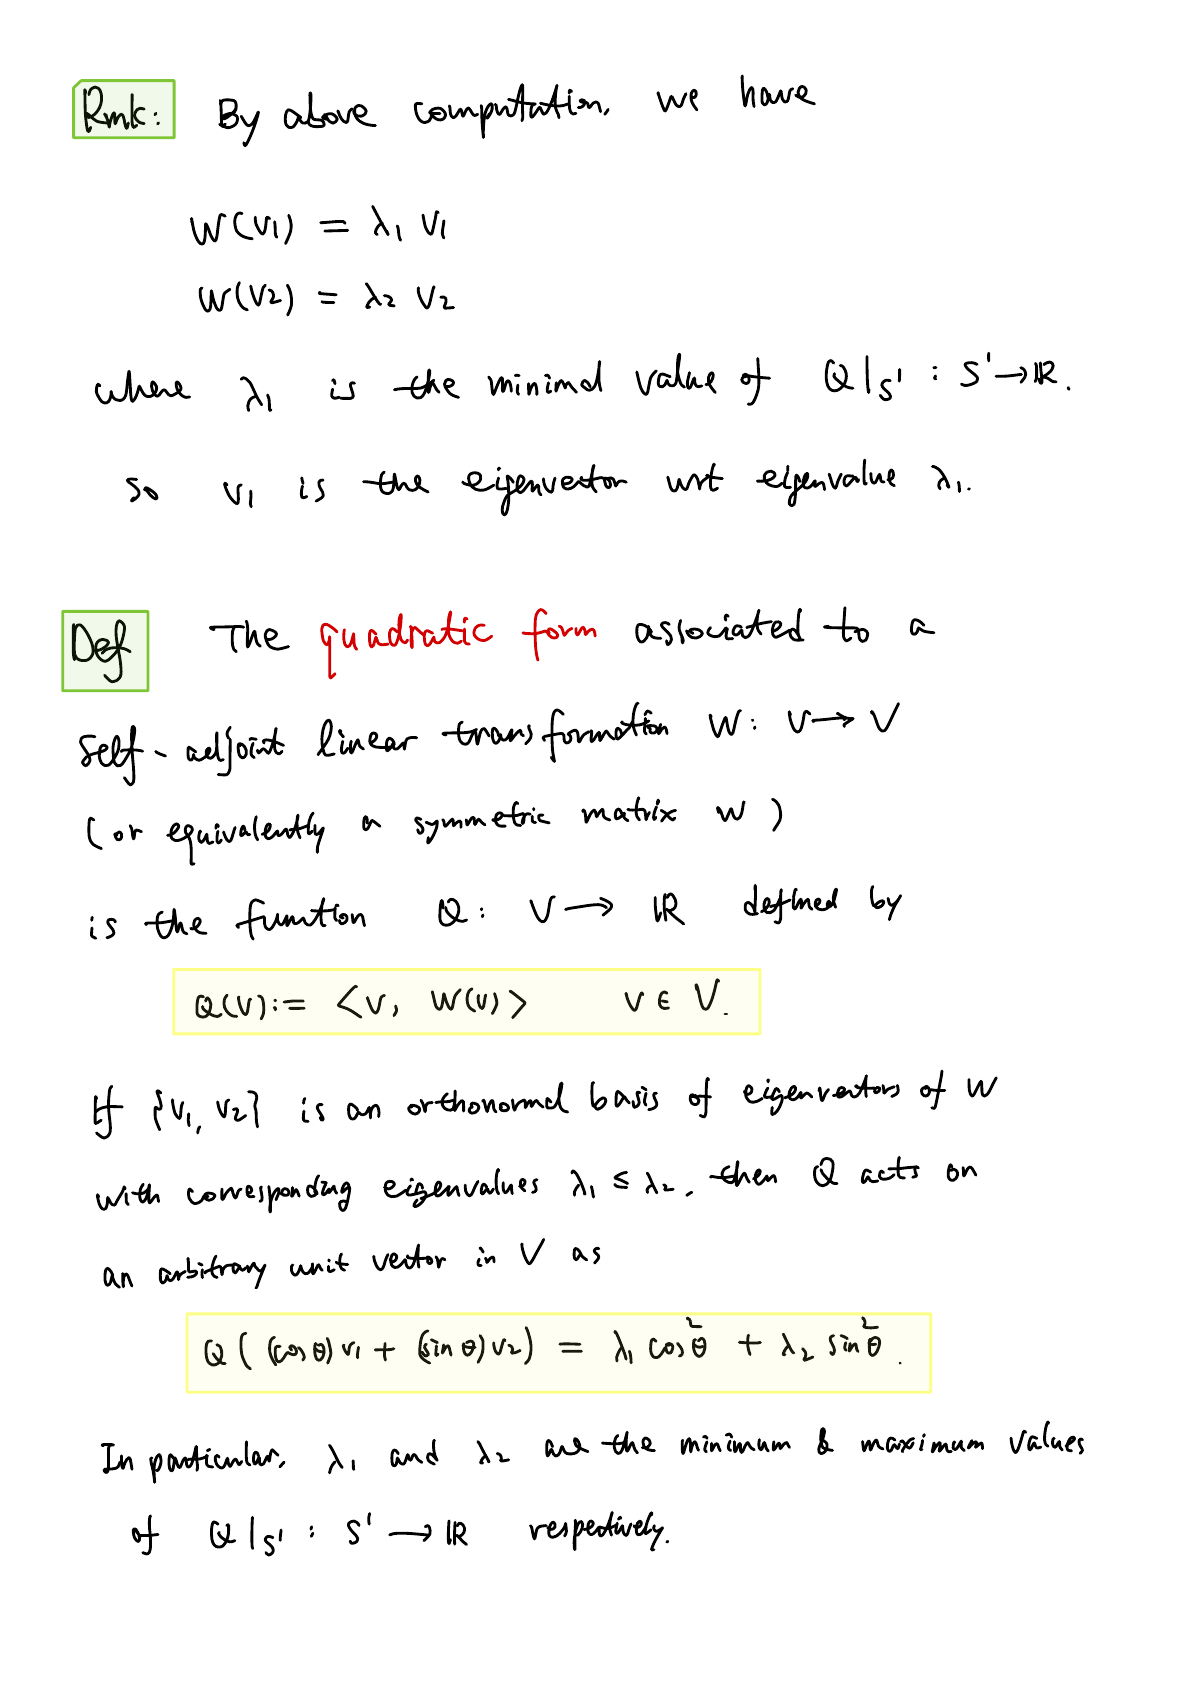 Rmk: By above computation, we have
W(v₁) = λ₁ v₁
W(v₂) = λ₂ v₂
where λ₁ is the minimal value of Q|S¹ : S¹ → ℝ.
so v₁ is the eigenvector wrt eigenvalue λ₁.
Def The quadratic form associated to a
self-adjoint linear transformation W: V → V
(or equivalently a symmetric matrix W)
is the function Q: V → ℝ defined by
Q(v) := <v, W(v)> v ∈ V.
If {v₁, v₂} is an orthonormal basis of eigenvectors of W
with corresponding eigenvalues λ₁ ≤ λ₂, then Q acts on
an arbitrary unit vector in V as
Q((cos θ) v₁ + (sin θ) v₂) = λ₁ cos²θ + λ₂ sin²θ.
In particular, λ₁ and λ₂ are the minimum & maximum values
of Q|S¹ : S¹ → ℝ respectively.